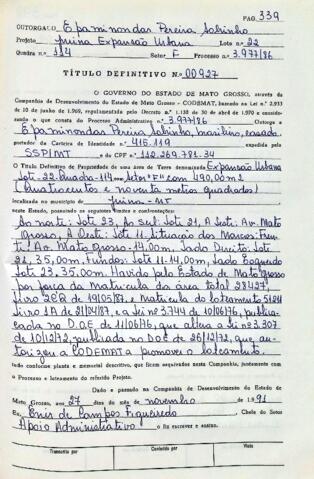 PAG. 339
OUTORGADO Epaminondas Pereira Sobrinho
Projeto Juina Expansão Urbana Lote n.º 22
Quadra n.º 114 Setor F Processo n.º 3.977/86
TÍTULO DEFINITIVO N.º 00927
O GOVERNO DO ESTADO DE MATO GROSSO, através da
Companhia de Desenvolvimento do Estado de Mato Grosso - CODEMAT, baseado na Lei n.º 2.933
de 10 de junho de 1969, regulamentada pelo Decreto n.º 1.138 de 30 de abril de 1970 e consideran-
do o que consta do Processo Administrativo n.º 3.977/86, outorga a
Epaminondas Pereira Sobinho, brasileiro, casado,
portador da Carteira de Identidade n.º 415.119
SSP/MT e do CPF n.º 112.269.781.34
O Título Definitivo de Propriedade de uma área de Terra denominada Expansão Urbana
Lote-22-Quadra-114, com setor "F" com 490,00m2
(Quatrocentos e noventa metros quadrados)
localizada no município de Juina-MT
neste Estado, possuindo os seguintes limites e confrontações:
Ao norte: Lote 23, Ao sul: Lote 21, A Leste: Av. Mato
Grosso, A Oeste: Lote 11. Situação dos Marcos: Fren-
te: Av. Mato Grosso-14,00m, Lado Direito: Lote
21, 35,00m, Fundos: Lote 11-14,00m, Lado Esquerdo
Lote 23, 35,00m. Havido pelo Estado de Mato Grosso
por força da Matricula da área total 28427,
livro 2CR de 19/05/87, e Matricula do loteamento 5124
livro 1A de 21/04/87, e a Lei n.º 3.744 de 10/06/76, publi-
cada no D.O.E de 11/06/76, que altera a Lei n.º 3.307
de 10/12/72, publicada no DOE de 26/12/72, que au-
torizou a CODEMAT a promover o loteamento.
tudo conforme planta e memorial descritivo, que ficam arquivados nesta Companhia, juntamente com
o Processo e loteamento do referido Projeto.
Dado e passado na Companhia de Desenvolvimento do Estado de
Mato Grosso, aos 27 dias do mês de novembro de 1991
Eu, Enis de Campos Figueiredo, Chefe do Setor
Apoio Administrativo o fiz escrever e assino.
Transcrito por Conferido por Visto